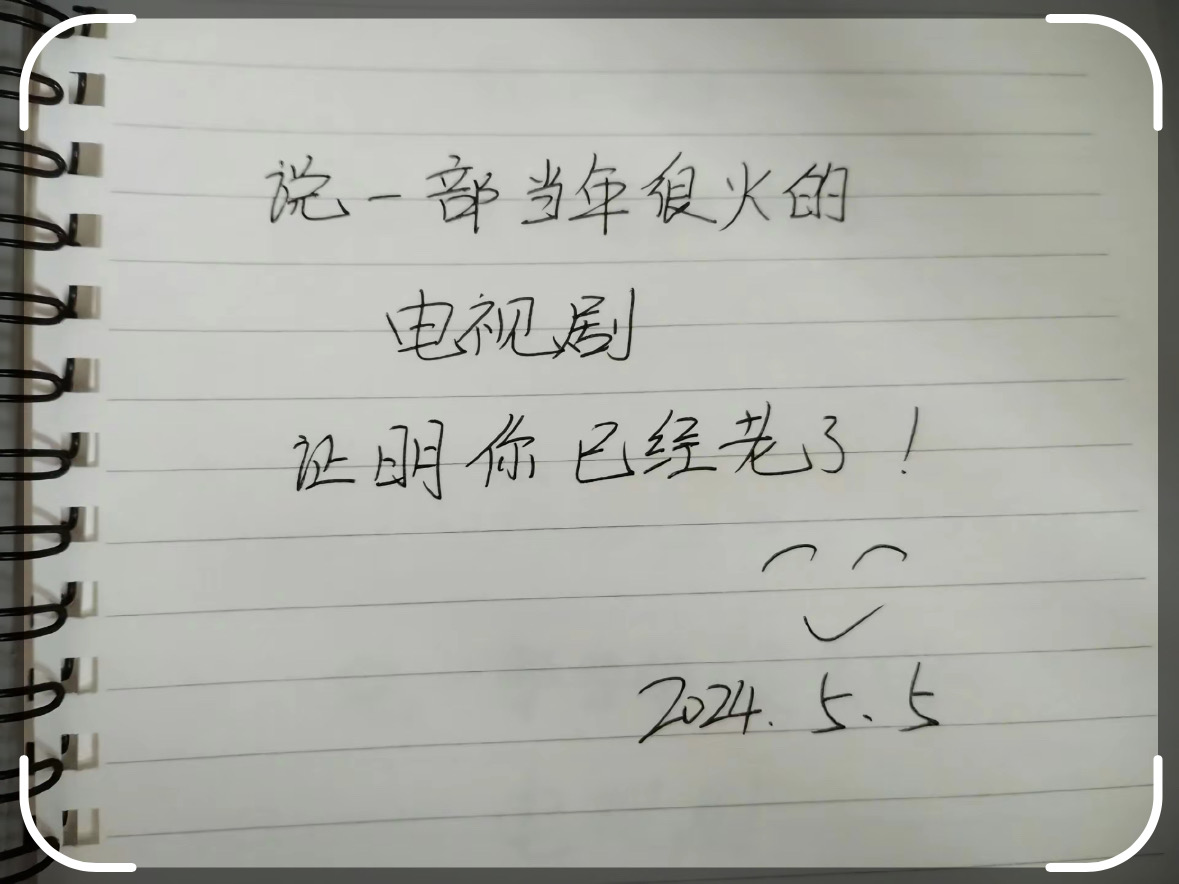 说一部当年很火的
电视剧
证明你已经老了！
2024.5.5